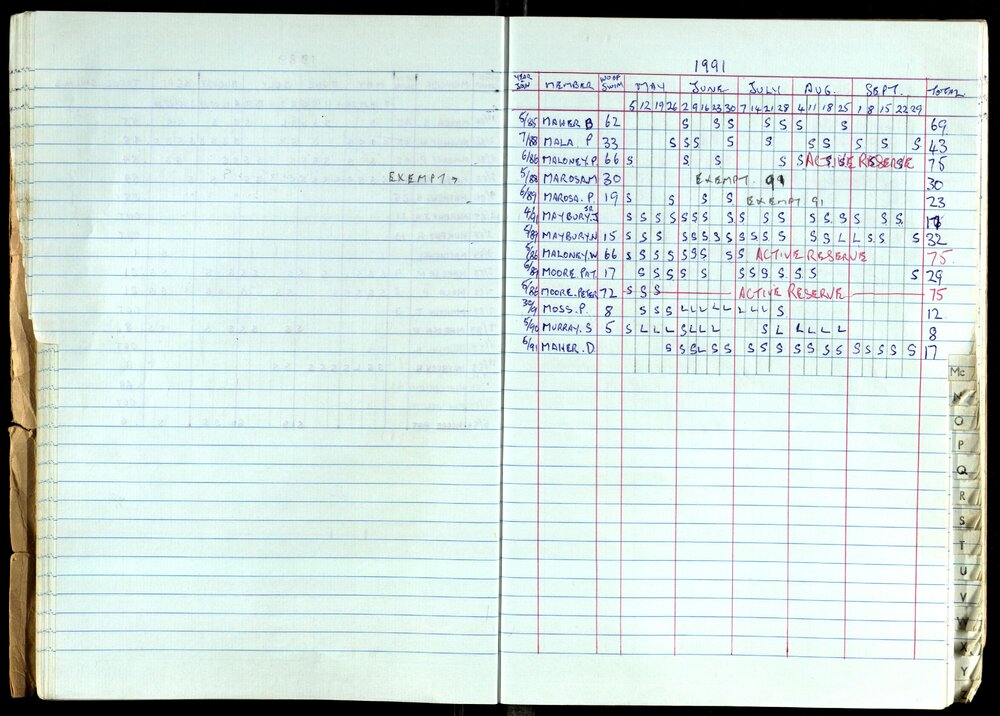 1991
YEAR JOIN MEMBER WDOP SWIM MAY JUNE JULY AUG. SEPT. TOTAL
5 12 19 26 2 9 16 23 30 7 14 21 28 4 11 18 25 1 8 15 22 29
5/85 MAHER B 62 S S S S S S S 69
7/88 MALA. P 33 S S S S S S S S S S 43
6/86 MALONEY.P 66 S S S S S ACTIVE RESERVE 75
EXEMPT → 5/88 MAROSA M 30 EXEMPT. 91 30
6/89 MAROSA. P. 19 S S S S EXEMPT 91 23
4/91 MAYBURY.J SR S S S S S S S S S S S S S S S S S S
5/89 MAYBURY.N 15 S S S S S S S S S S S S S L L S S S 32
5/86 MALONEY.W 66 S S S S S S S S S ACTIVE RESERVE 75.
6/89 MOORE.PAT 17 S S S S S S S S S S S S S 29
5/86 MOORE.PETER 72 S S S ACTIVE RESERVE 75
MOSS.P. 8 S S S L L L L L L L L S 12
5/90 MURRAY.S 5 S L L L S L L L S L L L L L 8
6/91 MAHER.D. S S S L S S S S S S S S S S S S S S S 17
Mc
N
O
P
Q
R
S
T
U
V
W
X
Y